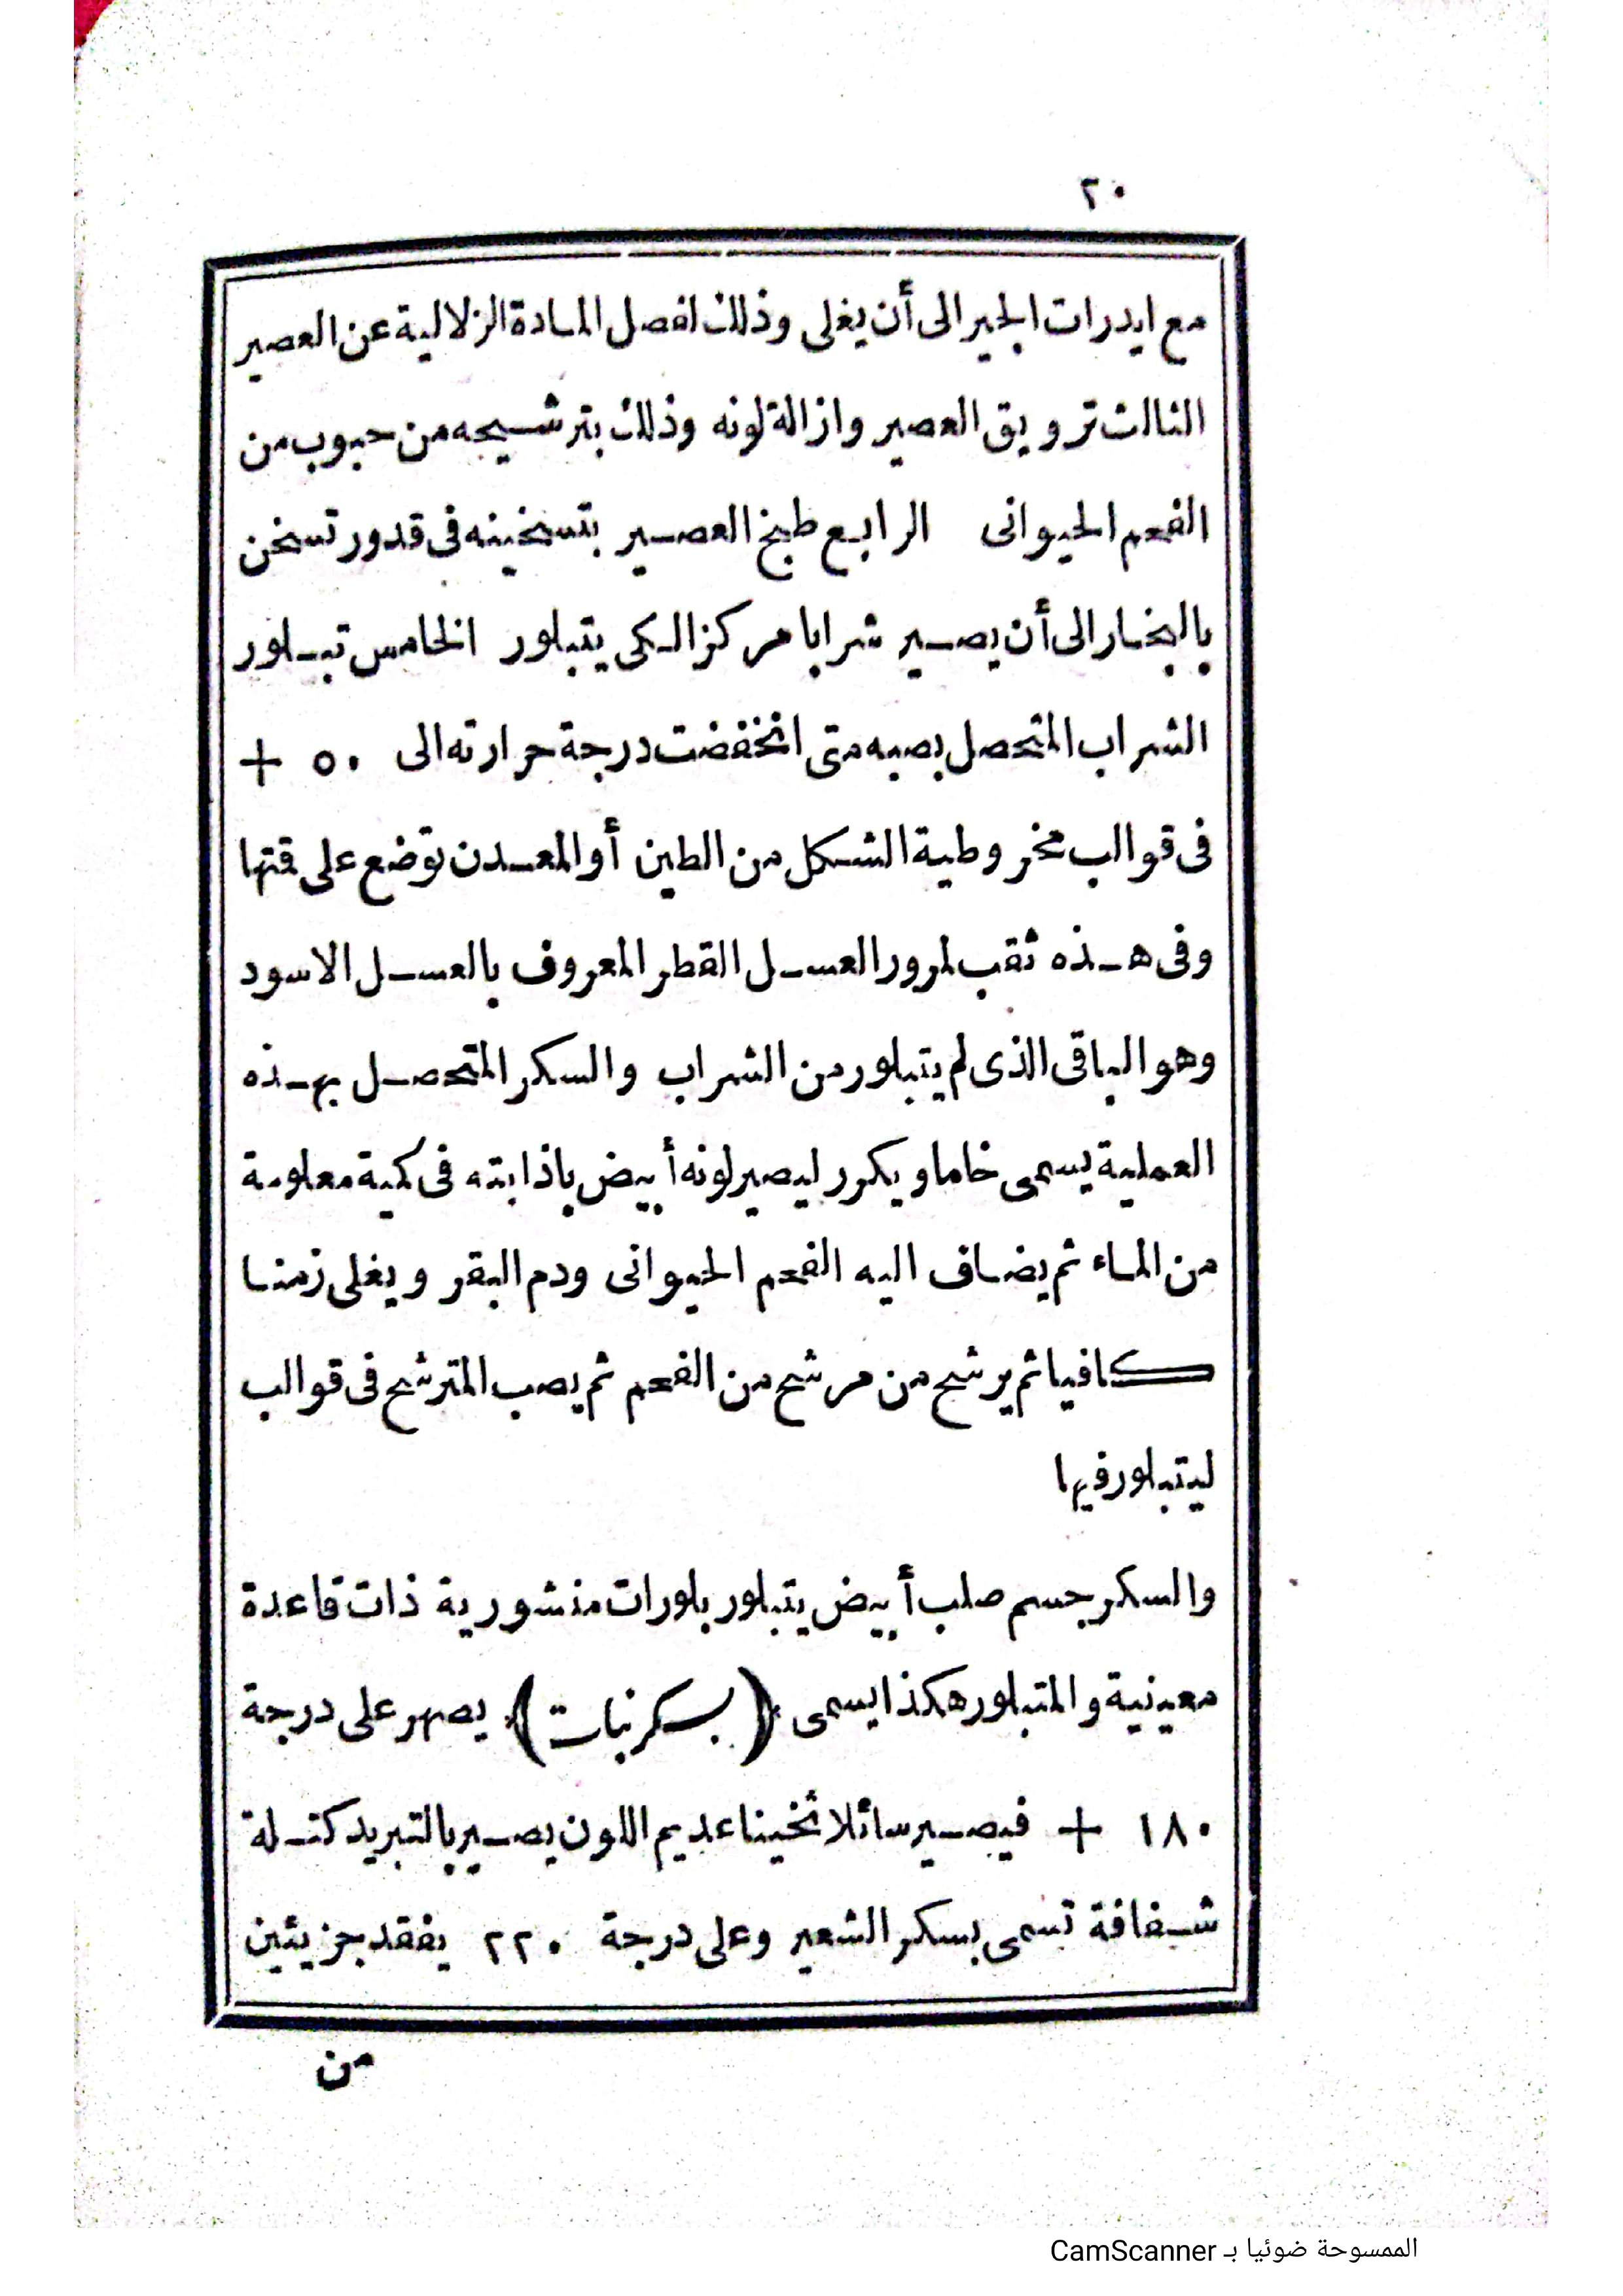 ٢٠
مع ايدرات الجير الى أن يغلى وذلك لفصل المادة الزلالية عن العصير
الثالث ترويق العصير وازالة لونه وذلك بترشيحه من حبوب من
الفحم الحيوانى الرابع طبخ العصير بتسخينه فى قدور تسخن
بالبخار الى أن يصير شرابا مركزا لكى يتبلور الخامس تبلور
الشراب المتحصل بصبه متى انخفضت درجة حرارته الى ٥٠ +
فى قوالب مخروطية الشكل من الطين أو المعدن توضع على قمتها
وفى هذه ثقب لمرور العسل القطر المعروف بالعسل الاسود
وهو الباقى الذى لم يتبلور من الشراب والسكر المتحصل بهذه
العملية يسمى خاما ويكرر ليصير لونه أبيض باذابته فى كمية معلومة
من الماء ثم يضاف اليه الفحم الحيوانى ودم البقر ويغلى زمنا
كافيا ثم يرشح من مرشح من الفحم ثم يصب المترشح فى قوالب
ليتبلور فيها
والسكر جسم صلب أبيض يتبلور بلورات منشورية ذات قاعدة
معينية والمتبلور هكذا يسمى (بسكر نبات) يصهر على درجة
١٨٠ + فيصير سائلا ثخينا عديم اللون يصير بالتبريد كتلة
شفافة تسمى بسكر الشعير وعلى درجة ٢٢٠ يفقد جزيئين
من
الممسوحة ضوئيا بـ CamScanner